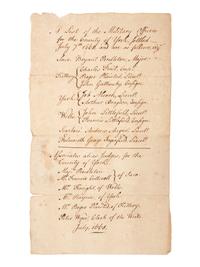 A List of the Military Officers
for the County of York, settled
July 7th 1668, and are as follows, viz
Saco Bryant Pendleton, Major
Charles Frost, Capt
Kittery Roger Plaisted, Lieut
John Gattensby Ensign
York Job Alcock, Lieut
Arthur Bragdon, Ensign
Wells John Littlefield, Lieut
Francis Littlefield Ensign
Scarboro Andrew Alger, Lieut
Falmouth George Ingersoll Lieut
Associates als Judges for the
County of York.
Majr Pendleton
Mr. Francis of Saco
Mr. Knight of Wells
Mr. of York
Mr. Roger Plaisted of Kittery
Peter Wyer Clerk of the Writs
July, 1668.